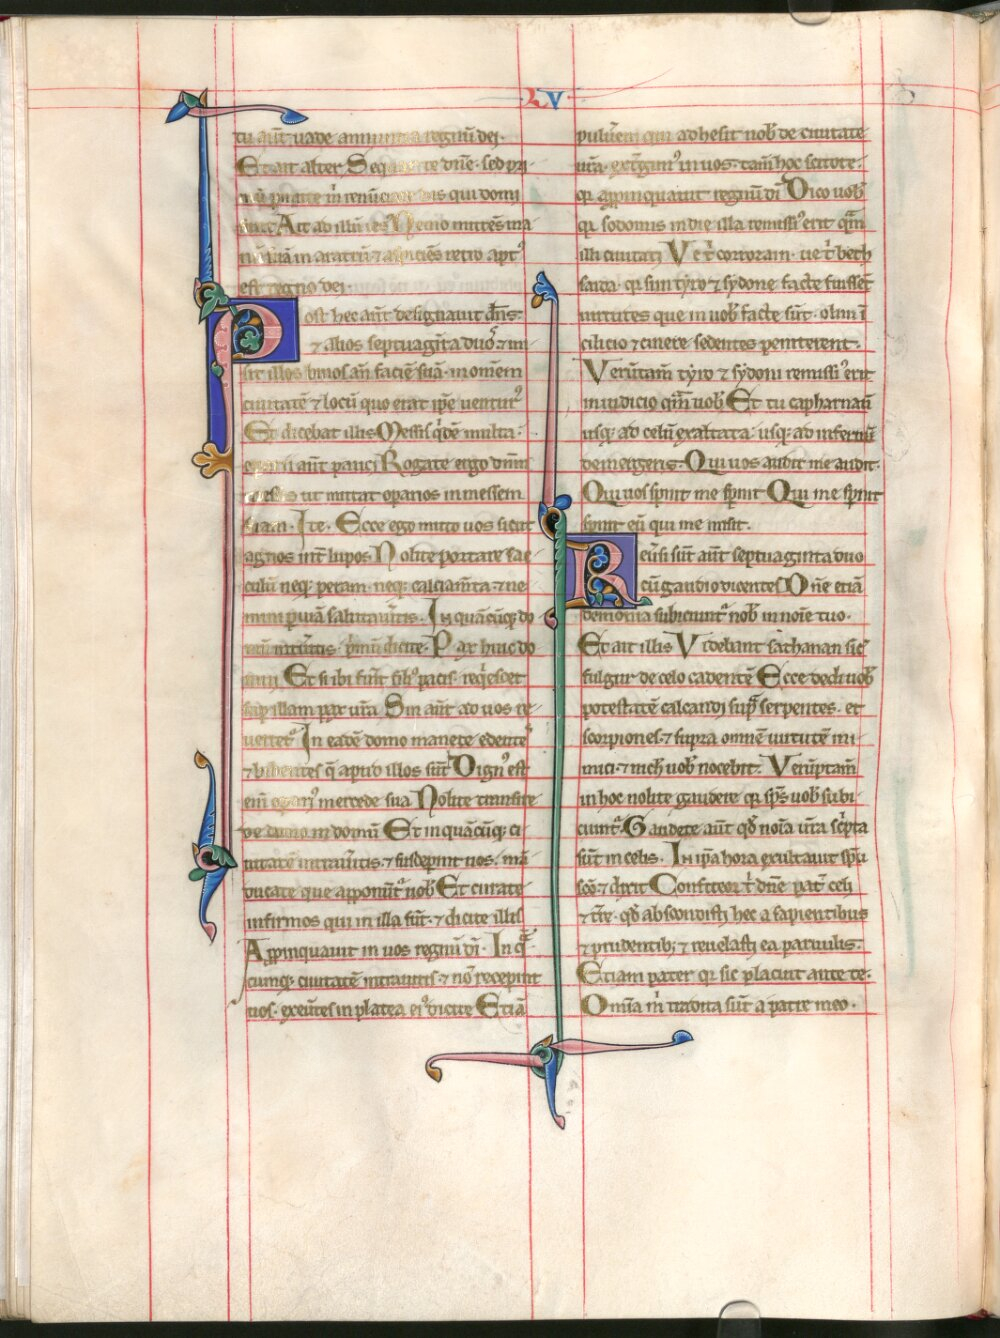 LV
tu aut̄ uade annuntia regnū dei.
Et ait alter Sequar te dn̄e. sed pri
mū ꝑmitte m̄ renūciare his qui domi
sunt Ait ad illū ie̅s Nemo mittēs ma
nū suā in aratrū ⁊ aspiciēs retro apt᷒
est regno dei
Post hec aut̄ designauit dn̄s
⁊ alios septuagīta duo. ⁊ mi
sit illos binos an̄ faciē suā. in omnem
ciuitatē ⁊ locū quo erat ip̄e uentur᷒
Et dicebat illis Messis q̇dē multa.
operarii aut̄ pauci Rogate ergo dn̄m
messis ut mittat oparios in messem
suam. Ite. Ecce ego mitto uos sicut
agnos int̄ lupos Nolite portare sac
culū neq; peram. neq; calciam̄ta. ⁊ ne
minī p uiā salutauītis. In quācūq; do
mū intrauītis. pmū dicite. Pax huic do
mui Et si ibi fuīt filī᷒ pacis. reqͥescet
sup illam pax ur̄a Sin aut̄ ad uos re
uertet᷒ In eadē domo manete edente᷒
⁊ bibentes q̄ apud illos sūt Dign᷒ est
enī opari᷒ mercede sua Nolite transire
de domo in domū Et in quācūq; ci
uitatē intrauītis. ⁊ suscepint uos. mā
ducate que apponūt᷒ uob̄ Et curate
infirmos qui in illa sūt. ⁊ dicite illis
Appinquauit in uos regnū di. In q̄
cumq; ciuitatē intrauītis. ⁊ nō recepint
uos. exeūtes in platea ei᷒ dicite Etiā
puluerem qui adhesit nob̄ de ciuitate
ur̄a. extgim᷒ in uos. tam̄ hoc scitote.
qr appinquauit regnū di Dico uob̄
qr sodomis in die illa remissi᷒ erit qm̄
illi ciuitati Ve t̄ corrozain. ue t̄ beth
saida. qr si in tyro ⁊ sydone facte fuisset
uirtutes que in uob̄ facte sūt. olim ī
cilicio ⁊ cinere sedentes peniterent.
Verūtam̄ tyro ⁊ sydoni remissi᷒ erit
in iudicio qm̄ uob̄ Et tu capharnaū
usq; ad celū exaltata. usq; ad infernū
demergeris. Qui uos audit me audit.
Qui uos spnit me spnit Qui me spnit
spnit eū qui me misit.
Reūsi sūt aut̄ septuaginta duo
cū gaudio dicentes Dn̄e etiā
demonia subiciunt᷒ nob̄ in noīe tuo.
Et ait illis Videbam sathanan sic᷒
fulgur de celo cadentē Ecce dedi uob̄
potestatē calcandi sup̄ serpentes. et
scorpiones. ⁊ supra omnē uirtutē ini
mici. ⁊ nich̄ uob̄ nocebit. Verūptam̄
in hoc nolite gaudere qr sp̄s uob̄ subi
ciunt᷒. Gaudete aut̄ qd̄ noīa ur̄a sc̄pta
sūt in celis. In ip̄a hora exultauit sp̄u
sc̄o. ⁊ dixit Confiteor t̄ dn̄e pat̄ celi
⁊ tr̄e. qd̄ abscondisti hec a sapientibus
⁊ prudentib; ⁊ reuelasti ea paruulis.
Etiam pater qr sic placuit ante te.
Om̄ia m̄ tradita sūt a patre meo.